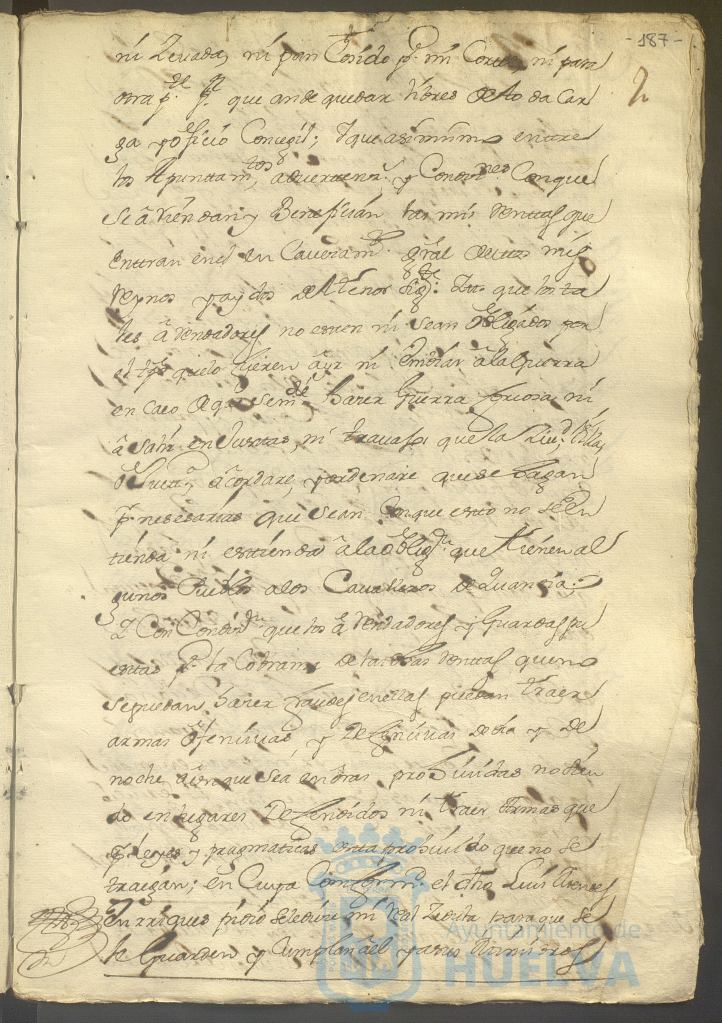 -187-
2
ni Zevada, ni pan Cosido pª mi Corte, ni para
otra pte pr que an de quedar libres de toda Car
ga y oficio Concegil; Y que asimismo entre
los Apuntamtos, advertenzs y Condiziones Conque
se ârriendan y Benefisian las mis Rentas que
entran en el en Cavezamto gral destos mis
Reynos y ay dos del tenor sigte: Que los ta
les ârrendadores no esten ni sean obligados por
el tpo que lo fueren â yr ni embiar â la Guerra
en caso de que se me de hazer Guerra forsosa, ni
â Salir en Justas, ni travajos que la Ziud, Villa,
o Lugar acordare, y ordenare que se hagan
pr nesesarias que sean Conque esto no se En
tienda ni estienda â la obligon que tienen al
gunos Pueblos a los Cavalleros de Quantia;
Y Con Condizn que los ârrendadores y Guardas pu
estas pª la Cobransa de las dhas Rentas que no
se puedan hazer fraudes en ellas puedan traer
armas ofensivas, y Defensivas de dia y de
noche aunque sea en dras prohividas no sien
do en lugares Defendidos ni traer Armas que
pr leyes y pragmaticas esta prohivido que no se
traigan; en Cuya Comformd el dho Luis
Enrriques pidio se le diese mi Real Zedula para que se
le Guarden y Cumplan a el y a sus
Ayuntamiento de
HUELVA